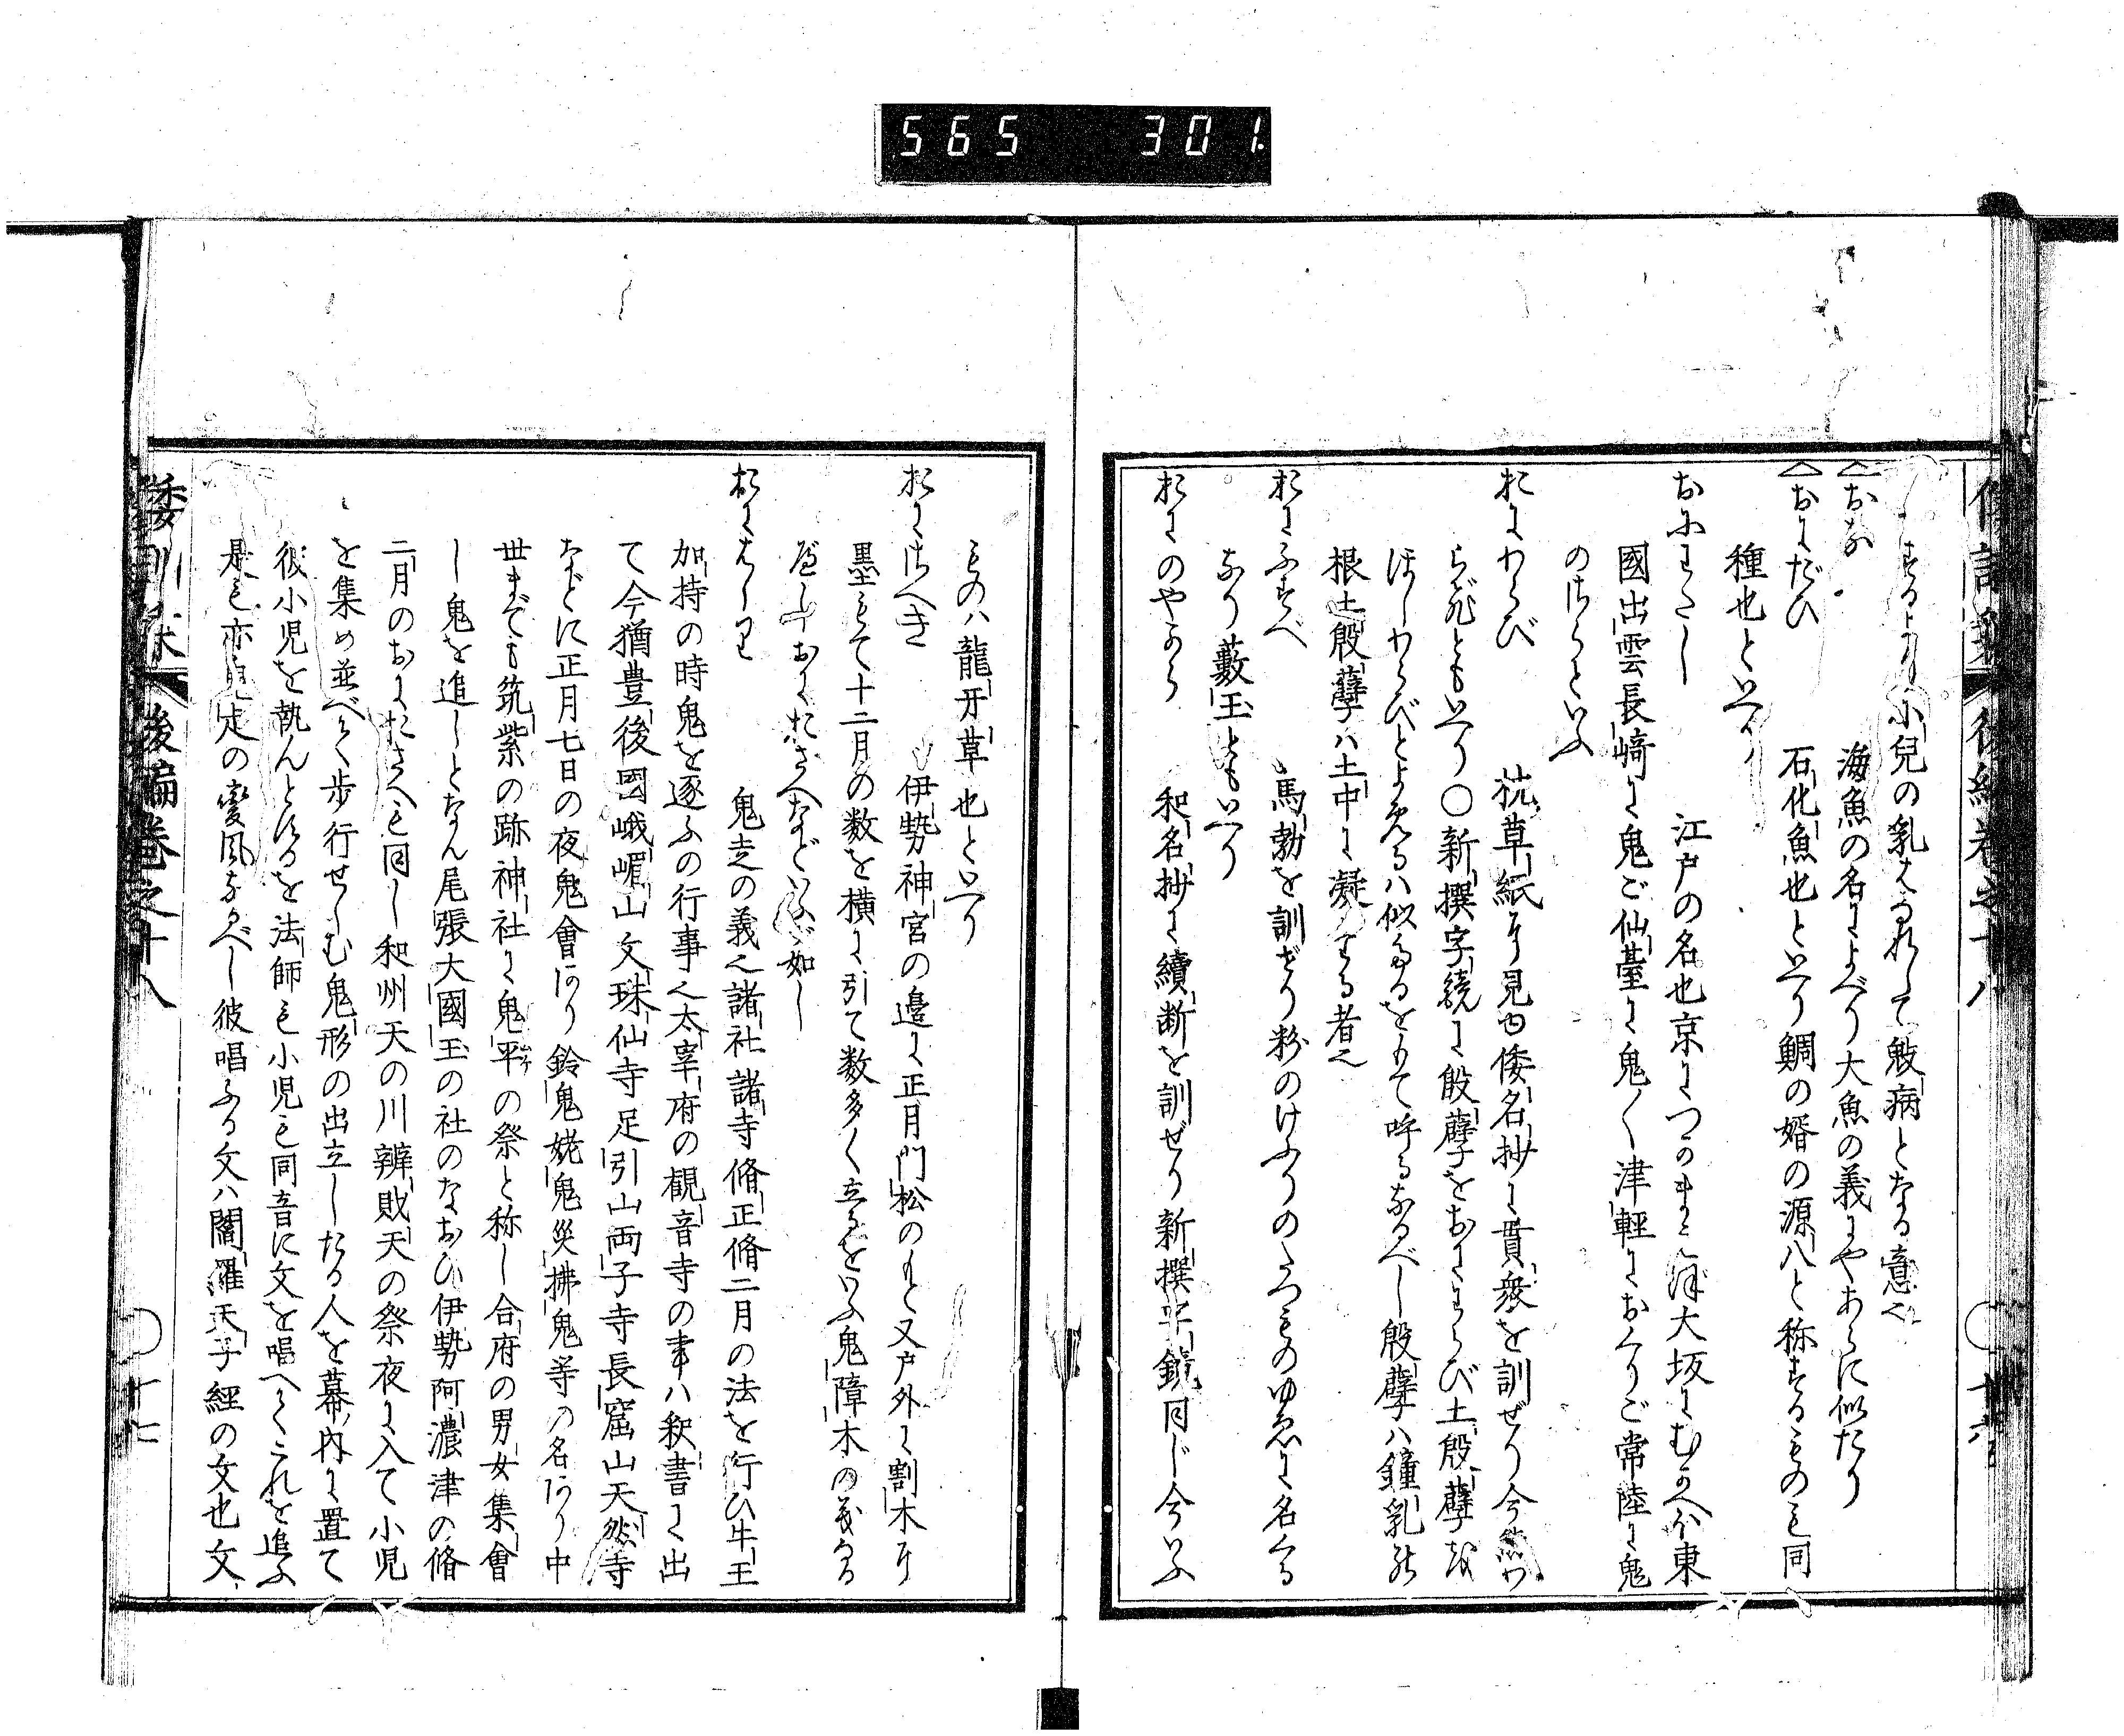 565 301
するより小兒の乳はなれして魃病となる意也
おな 海魚の名によべり大魚の義にやあらに似たり
おにだひ 石化魚也といへり鯛の婿の源八と称するものも同
種也といへり
おにわたし 江戸の名也京につかまへ大坂にむかへ東
國出雲長﨑に鬼ご仙臺に鬼〱津輕におくりご常陸に鬼
のさらといふ
おにわらび 枕草紙に見ゆ倭名抄に貫衆を訓ぜり今
らびともいへり〇新撰字鏡に殷孽をおにわらび土殷孽を
ほしわらびとよめるは似たるをもて呼るなるべし殷孽ハ鐘乳の
根土殷孽ハ土中に凝する者也
おにふすべ 馬勃を訓ぜり粉のけふりのたつものゆゑに名くる
なり藪玉ともいへり
おにのやから 和名抄に續断を訓ぜり新撰字鏡同じ今いふ
ものハ龍牙草也といへり
おにさへき 伊勢神宮の邊に正月門松のもと又戸外に割木に
墨もて十二月の数を横に引て数多く立るをいふ鬼障木の義なる
べしおにおさへなどいふが如し
おにはしり 鬼走の義也諸社諸寺脩正脩二月の法を行ひ牛王
加持の時鬼を逐ふの行事也太宰府の觀音寺の事ハ釈書に出
て今猶豊後國峨嵋山文珠仙寺足引山両子寺長窟山天然寺
などに正月七日の夜鬼會あり鈴鬼姥鬼災拂鬼等の名あり中
世までも筑紫の跡神社に鬼平の祭と称し合府の男女集會
し鬼を追しとなん尾張大國玉の社のなおひ伊勢阿濃津の脩
二月のおにおさへも同し和州天の川辨敗天の祭夜に入て小児
を集め並べて歩行せしむ鬼形の出立したる人を幕内に置て
彼小児を執んとするを法師も小児も同音に文を唱へてこれを追ふ
是も亦鬼走の變風なるべし彼唱ふる文ハ閻羅天子經の文也文
倭訓栞 後編巻之十八 十七